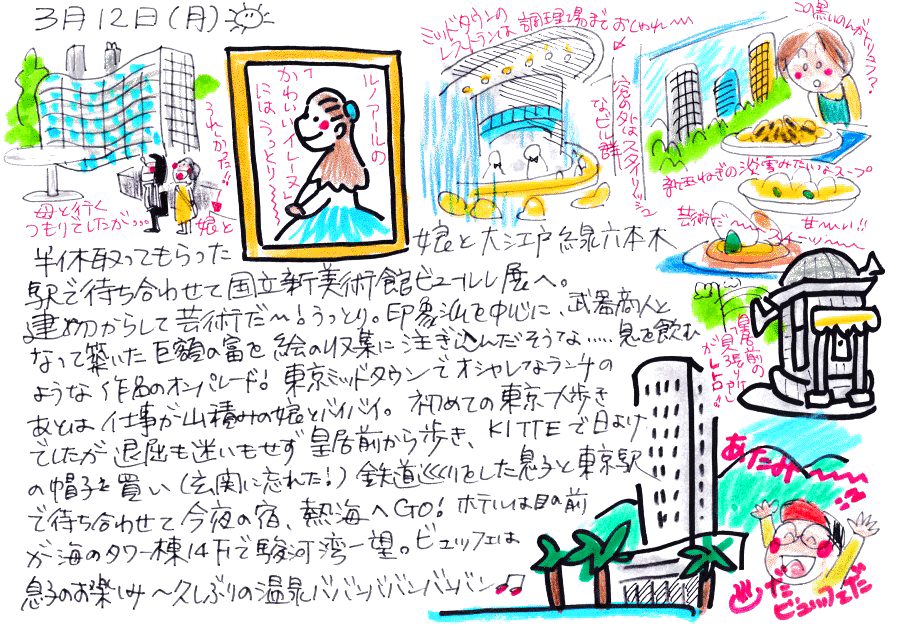 3月12日(月)
母と行く
つもりでしたが…。
娘と
うれしかった!!
ルノアールの
「かわいいイレーヌ」
にはうっとり〜
ミッドタウンの
レストランは調理場までおしゃれ〜
窓の外はスタイリッシュ
なビル群
この黒いのんがトリュフ?
新玉ねぎの淡雪みたいなスープ
甘〜い!!
芸術だ〜
半休取ってもらった
娘と大江戸線六本木
駅で待ち合わせて国立新美術館ビュールレ展へ。
建物からして芸術だ〜!うっとり。印象派を中心に、武器商人と
なって築いた巨額の富を絵の収集に注ぎ込んだそうな……息を飲む
ような作品のオンパレード!東京ミッドタウンでオシャレなランチの
あとは仕事が山積みの娘とバイバイ。初めての東京大歩き
でしたが退屈も迷いもせず皇居前から歩き、KITTEで日よけ
の帽子を買い(玄関に忘れた!)鉄道巡りをした息子と東京駅
で待ち合わせて今夜の宿、熱海へGO!ホテルは目の前
が海のタワー棟14Fで駿河湾一望。ビュッフェは
息子のお楽しみ〜久しぶりの温泉ババンババンバンバン♫
皇居前の
「見張り所」
がレトロ!!
あたみ〜
♨だ
ビュッフェだ